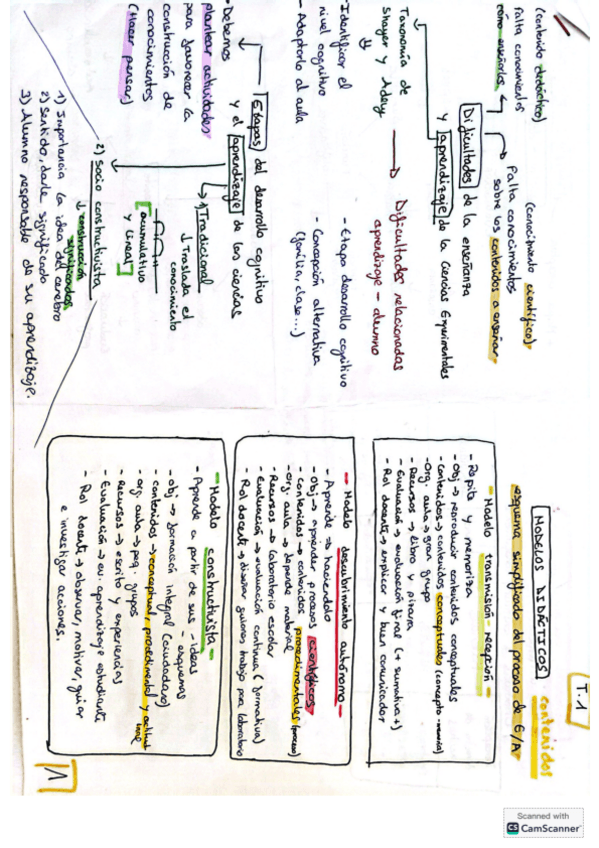 T.1
MODELOS DIDÁCTICOS
contenidos
esquema simplificado del proceso de E/A
- Modelo transmisión - recepción -
- Repite y memoriza
- Obj → reproducir contenidos conceptuales
- contenidos → contenidos conceptuales (concepto - memoria)
- Org. aula → gran grupo
- Recursos → libro y pizarra
- Evaluación → evaluación final (+ sumativa +)
- Rol docente → explicar y buen comunicador
- Modelo descubrimiento autónomo -
- Aprende → haciéndolo
- Obj → aprender procesos científicos
- contenidos → contenidos procedimentales (proceso)
- org. aula → depende material
- Recursos → laboratorio escolar
- Evaluación → evaluación continua (formativa)
- Rol docente → diseñar guiones trabajo para laboratorio
- Modelo constructivista -
- Aprende a partir de sus - ideas
- esquemas
- obj → formación integral (ciudadano)
- contenidos → conceptual, procedimental y actitudinal
- org. aula → peq. grupos
- Recursos → escrito y experiencias
- Evaluación → ev. aprendizaje estudiante
- Rol docente → observar, motivar, guiar
e investigar acciones.
1
(contenido didáctico)
Falta conocimiento
cómo enseñarlos
(conocimiento científico)
Falta conocimientos
sobre los contenidos a enseñar
Dificultades de la enseñanza
y aprendizaje de la Ciencias Experimentales
Taxonomía de
Shayer y Adey
- Identificar el
nivel cognitivo
- Adaptarlo al aula
Dificultades relacionadas
aprendizaje - alumno
- Etapa desarrollo cognitivo
- Concepción alternativa
(familia, clase...)
Etapas del desarrollo cognitivo
y el aprendizaje de las ciencias
- Debemos
plantear actividades
para favorecer la
construcción de
conocimientos
(Hacer pensar)
1) Tradicional
↓ Traslada el
conocimiento
acumulativo
y lineal
2) Socio constructivista
↓ construcción
significados
1) Importancia la idea del cerebro
2) Sentido, darle significado
3) Alumno responsable de su aprendizaje.
Scanned with
CS CamScanner